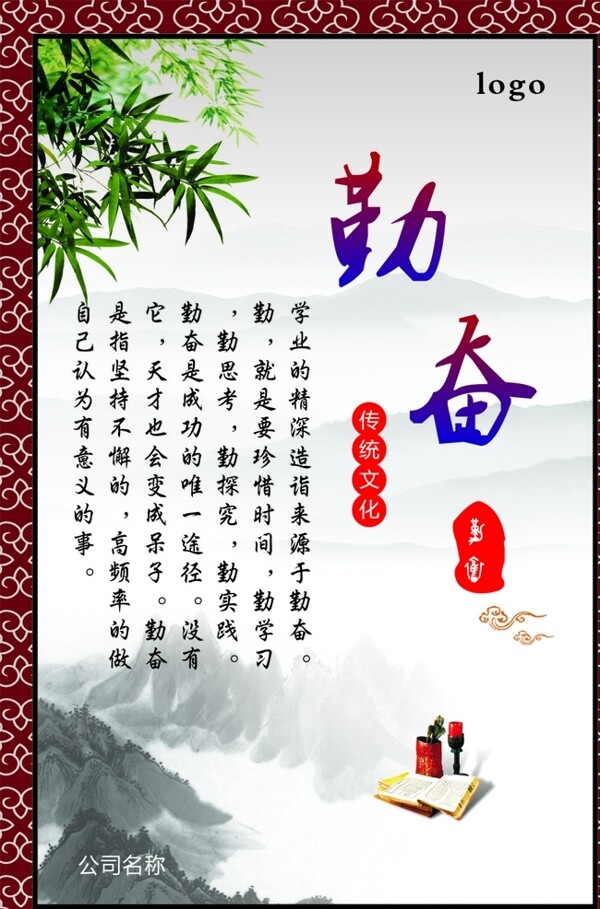 logo
勤奋
传统文化
勤奋
学业的精深造诣来源于勤奋。
勤，就是要珍惜时间，勤学习
，勤思考，勤探究，勤实践。
勤奋是成功的唯一途径。没有
它，天才也会变成呆子。勤奋
是指坚持不懈的，高频率的做
自己认为有意义的事。
公司名称